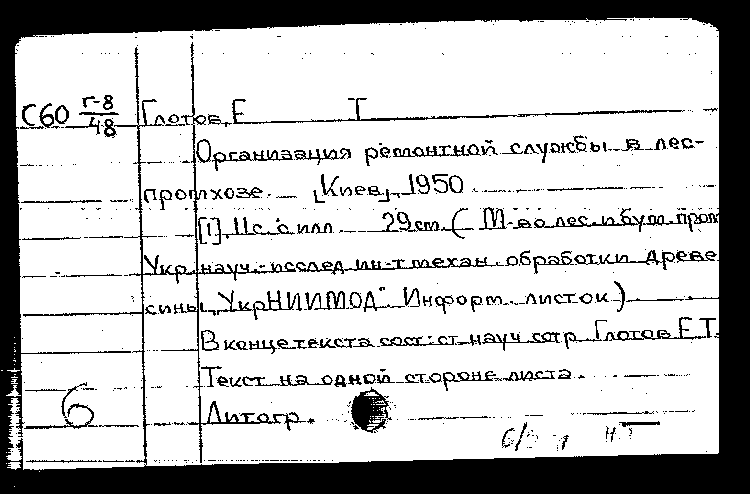 С60 Г-8/48 Глотов, Е Т
Организация ремонтной службы в лес-
промхозе. — [Киев], 1950
[1], 11с. с илл. 29см. (М-во лес. и бум. пром
Укр. науч.-исслед. ин-т механ. обработки древе
сины „УкрНИИМОД". Информ. листок).
В конце текста сост: ст. науч. сотр. Глотов Е.Т.
Текст на одной стороне листа.
6 Литогр.